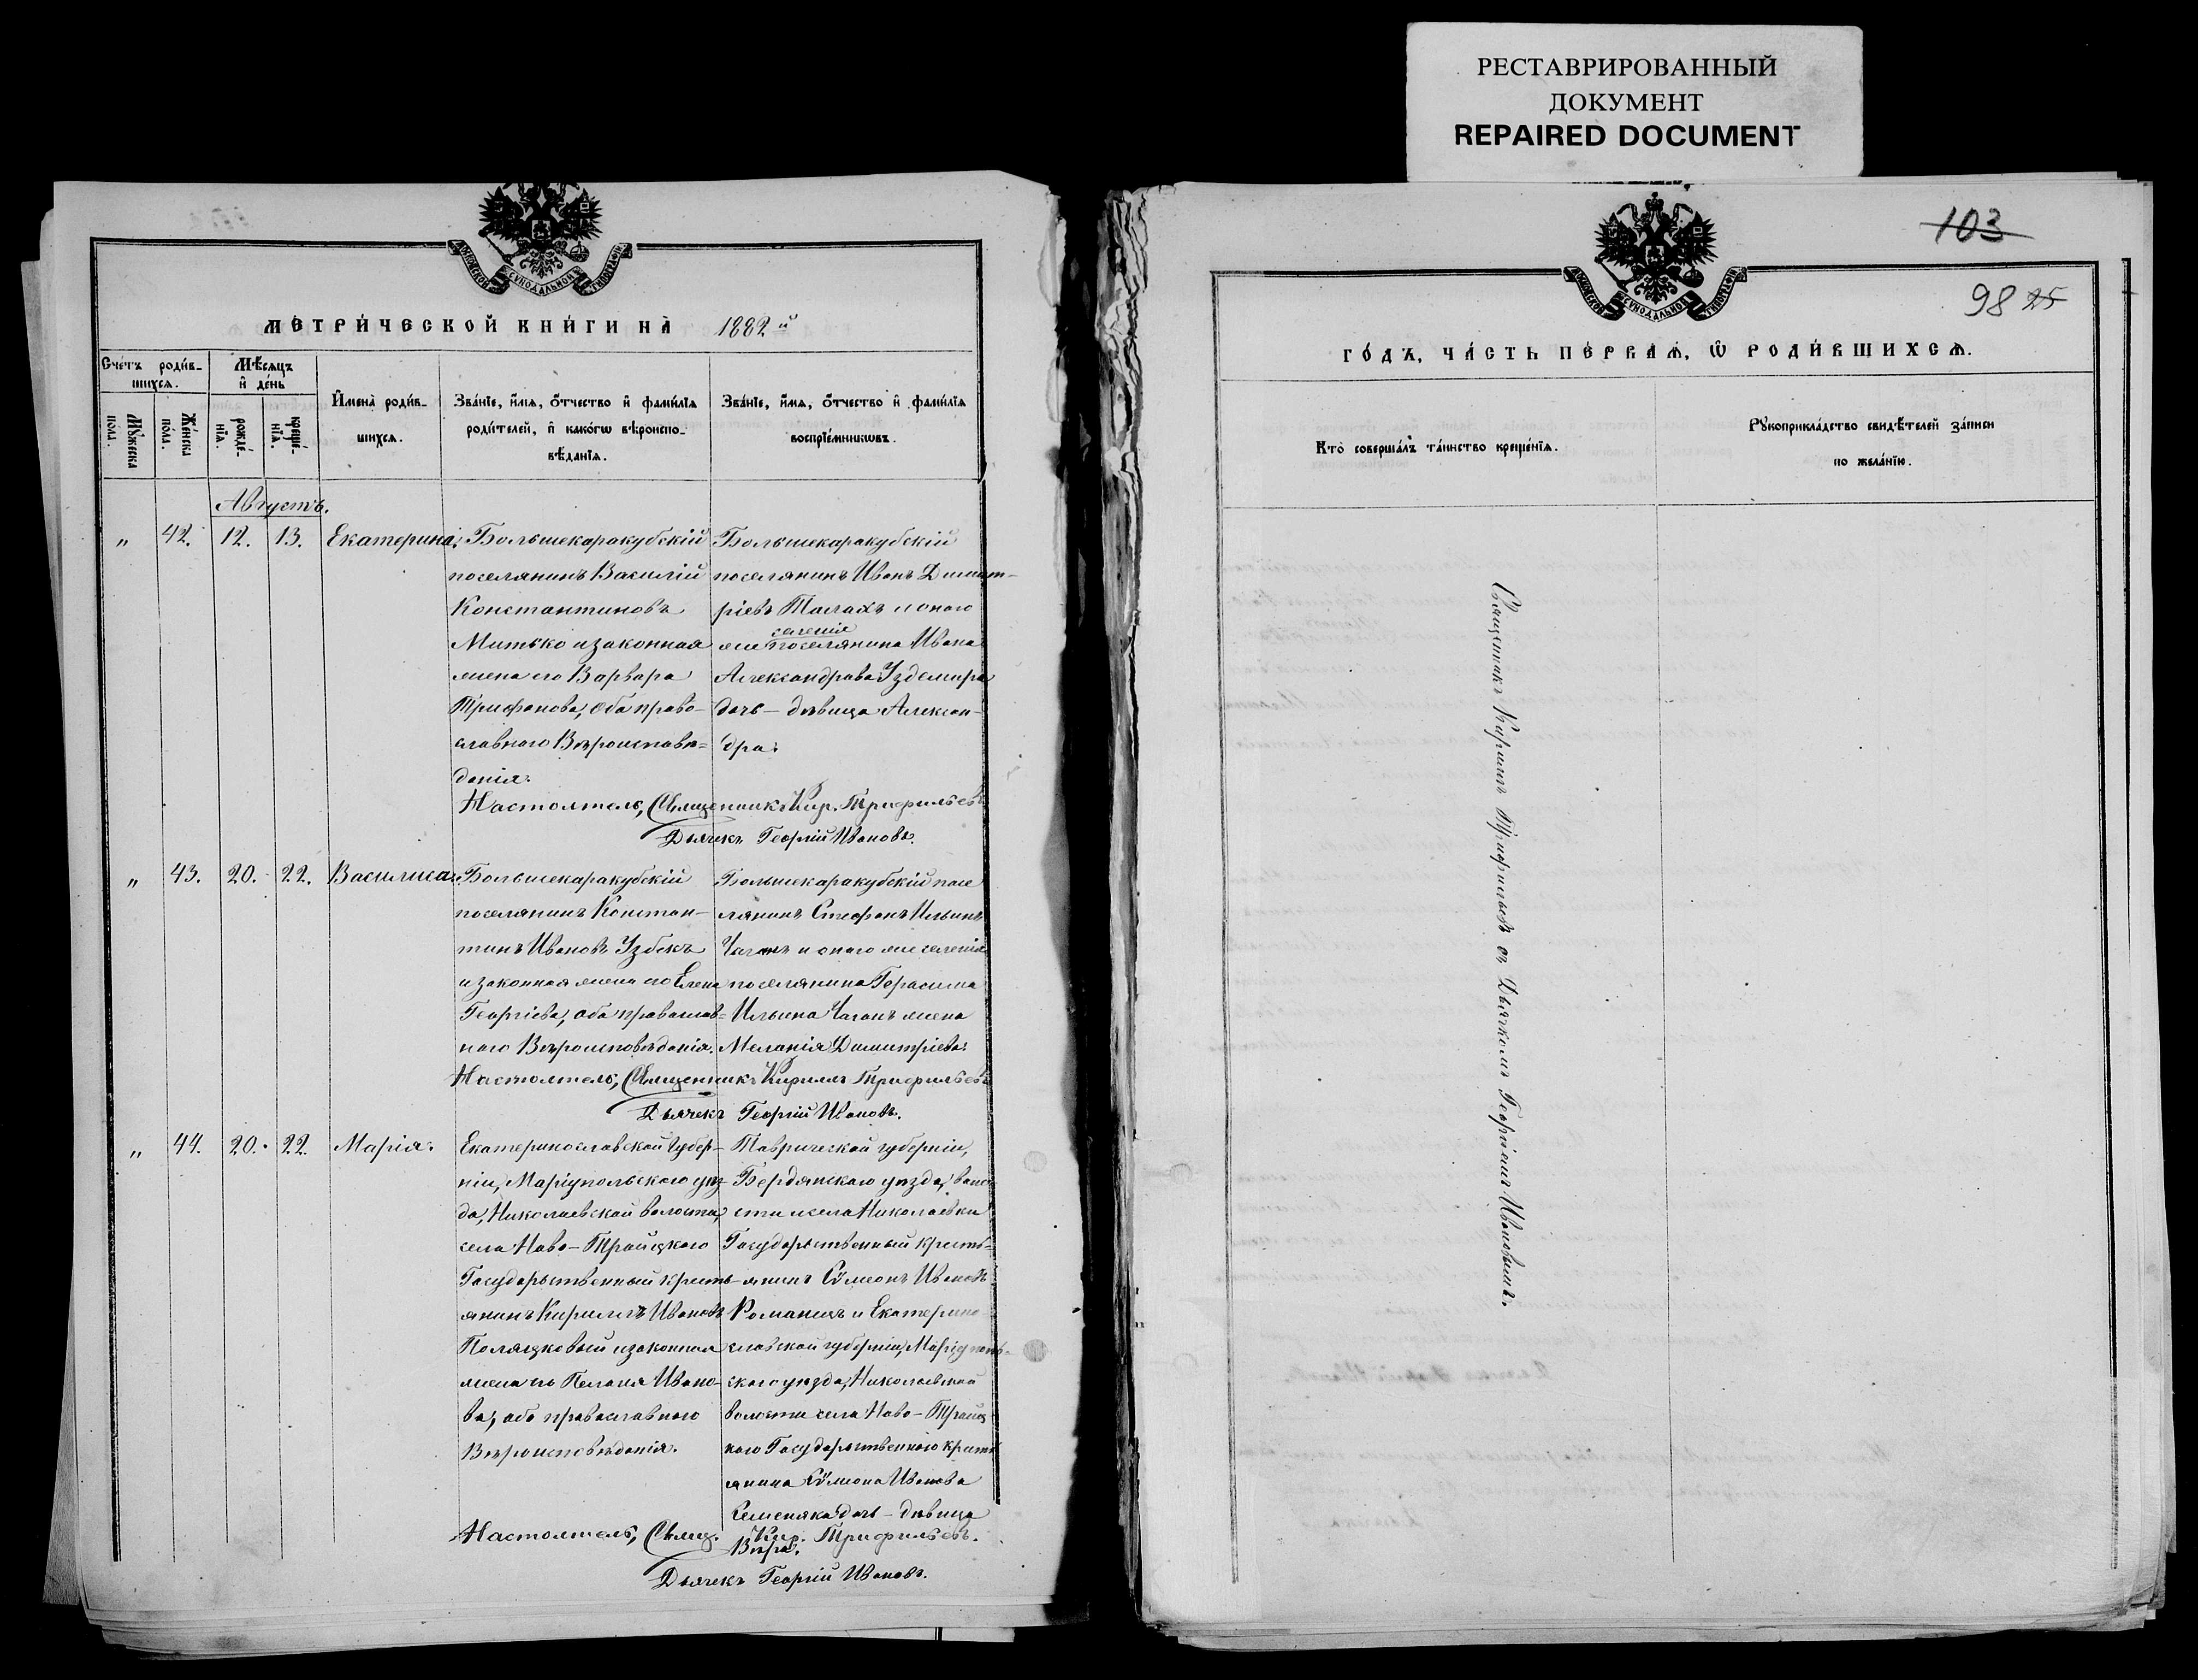 РЕСТАВРИРОВАННЫЙ
ДОКУМЕНТ
REPAIRED DOCUMENT
МОСКОВСКОЙ СѴНОДАЛЬНОЙ ТИПОГРАФІИ
МЕТРИ́ЧЕСКОЙ КНИ́ГИ НА̀ 1882 й
Сче́тъ роди́в-
шихсѧ.
Мѣ́сѧцъ
и҆ де́нь
Мꙋ́жеска
по́ла.
Же́нска
по́ла.
рожде́-
нїѧ.
креще́-
нїѧ.
И҆мена̀ роди́в-
шихсѧ.
Зва́нїе, и҆́мѧ, ѻ҆́тчество и҆ фами́лїѧ
роди́телей, и҆ како́гѡ вѣроиспо-
вѣ́данїѧ.
Зва́нїе, и҆́мѧ, ѻ҆́тчество и҆ фами́лїѧ
воспрїе́мникѡвъ.
Августъ.
" 42. 12. 13. Екатерина.
Большекаракубскій
поселянинъ Василій
Константиновъ
Митько и законная
жена его Варвара
Трифонова, оба право-
славного Вѣроисповѣ-
данія.
Большекаракубскій
поселянинъ Иванъ Димит-
ріевъТалахъ и оного
же селенія поселянина Ивана
Александрова Уздемира
дочь - дѣвица Алексан-
дра.
Настоятель, Священникъ Кир. Трифильевъ.
Дьячекъ Георгій Ивановъ.
" 43. 20. 22. Василиса.
Большекаракубскій
поселянинъ Констан-
тинъ Ивановъ Узбекъ
и законная жена его Елена
Георгіева, оба православ-
ного Вѣроисповѣданія.
Большекаракубскій посе
лянинъ Стефанъ Ильинъ
Чаганъ и оного же селенія
поселянина Герасима
Ильина Чаганъ жена
Меланія Димитріева.
Настоятель, Священникъ Кириллъ Трифильевъ
Дьячекъ Георгій Ивановъ.
" 44. 20. 22. Марія.
Екатеринославской губер-
ніи, Маріупольского уѣз-
да, Николаевской волости,
села Ново-Троицкого
Государственный кресть-
янинъ Кириллъ Ивановъ
и законная
жена его Пелагія Ивано-
ва, оба православного
Вѣроисповѣданія.
Таврической губерніи,
Бердянского уѣзда, воло
сти и села Николаевки
Государственный кресть-
янинъ Сѵмеонъ Ивановъ
Романихъ и Екатерино
славской губерніи, Маріуполь-
ского уѣзда, Николаевской
волости села Ново-Троиц
кого Государственного кресть
янина Сѵмеона Иванова
Семеняка дочь - дѣвица
Вѣра.
Настоятель, Свящ. Кир. Трифильевъ.
Дьячекъ Георгій Ивановъ.
103
98 25
МОСКОВСКОЙ СѴНОДАЛЬНОЙ ТИПОГРАФІИ
ГО́ДЪ, ЧА́СТЬ ПЕ́РВАѦ, Ѡ҆ РОДИ́ВШИХСѦ.
Кто̀ соверша́лъ та́инство креще́нїѧ.
Рꙋкоприкла́дство свидѣ́телей за́писи
по жела́нїю.
Священникъ Кириллъ Трифильевъ съ Дьячкомъ Георгіемъ Ивановымъ.